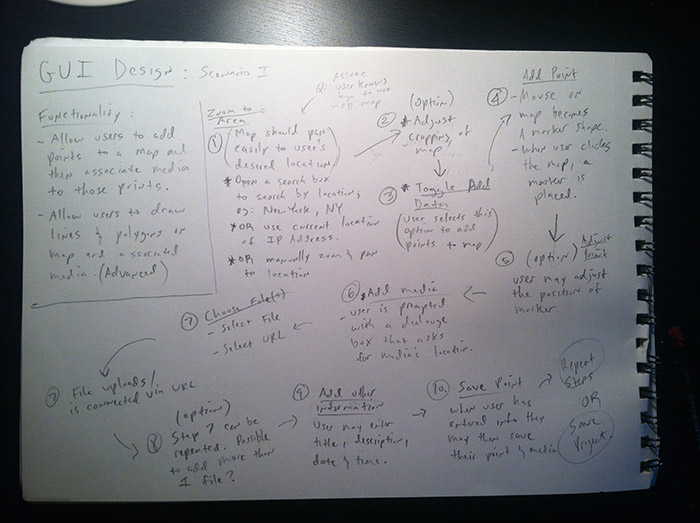 GUI Design: Scenario I
Functionality:
- Allow users to add
points to a map and
then associate media
to those points.
- Allow users to draw
lines & polygons on
map and associated
media. (Advanced)
Assume
user knows
how to use
web map
Zoom to
Area
① (Map should pan
easily to user's
desired location)
* Open a search box
to search by location;
eg: New York, NY
* OR use current location
of IP Address.
* OR manually zoom & pan
to location
(option)
② * Adjust
cropping of
map
③ * Toggle Add
Data
(User selects this
option to add
points to map)
Add Point
④ - Mouse on
map becomes
a marker shape.
- When user clicks
the map, a
marker is
placed.
⑤ (option) Adjust
Point
user may adjust
the position of
marker.
⑥ * Add media
- user is prompted
with a dialouge
box that asks
for media's location.
⑦ Choose File(s)
- Select File
- Select URL
⑦ File uploads/
is connected via URL
(option)
⑧ Step 7 can be
repeated. Possible
to add more than
1 file?
⑨ Add other
information
User may enter
title, description,
date & time.
10. Save Point
when user has
entered info they
may then save
their point & media
Repeat
Steps
OR
Save
Project